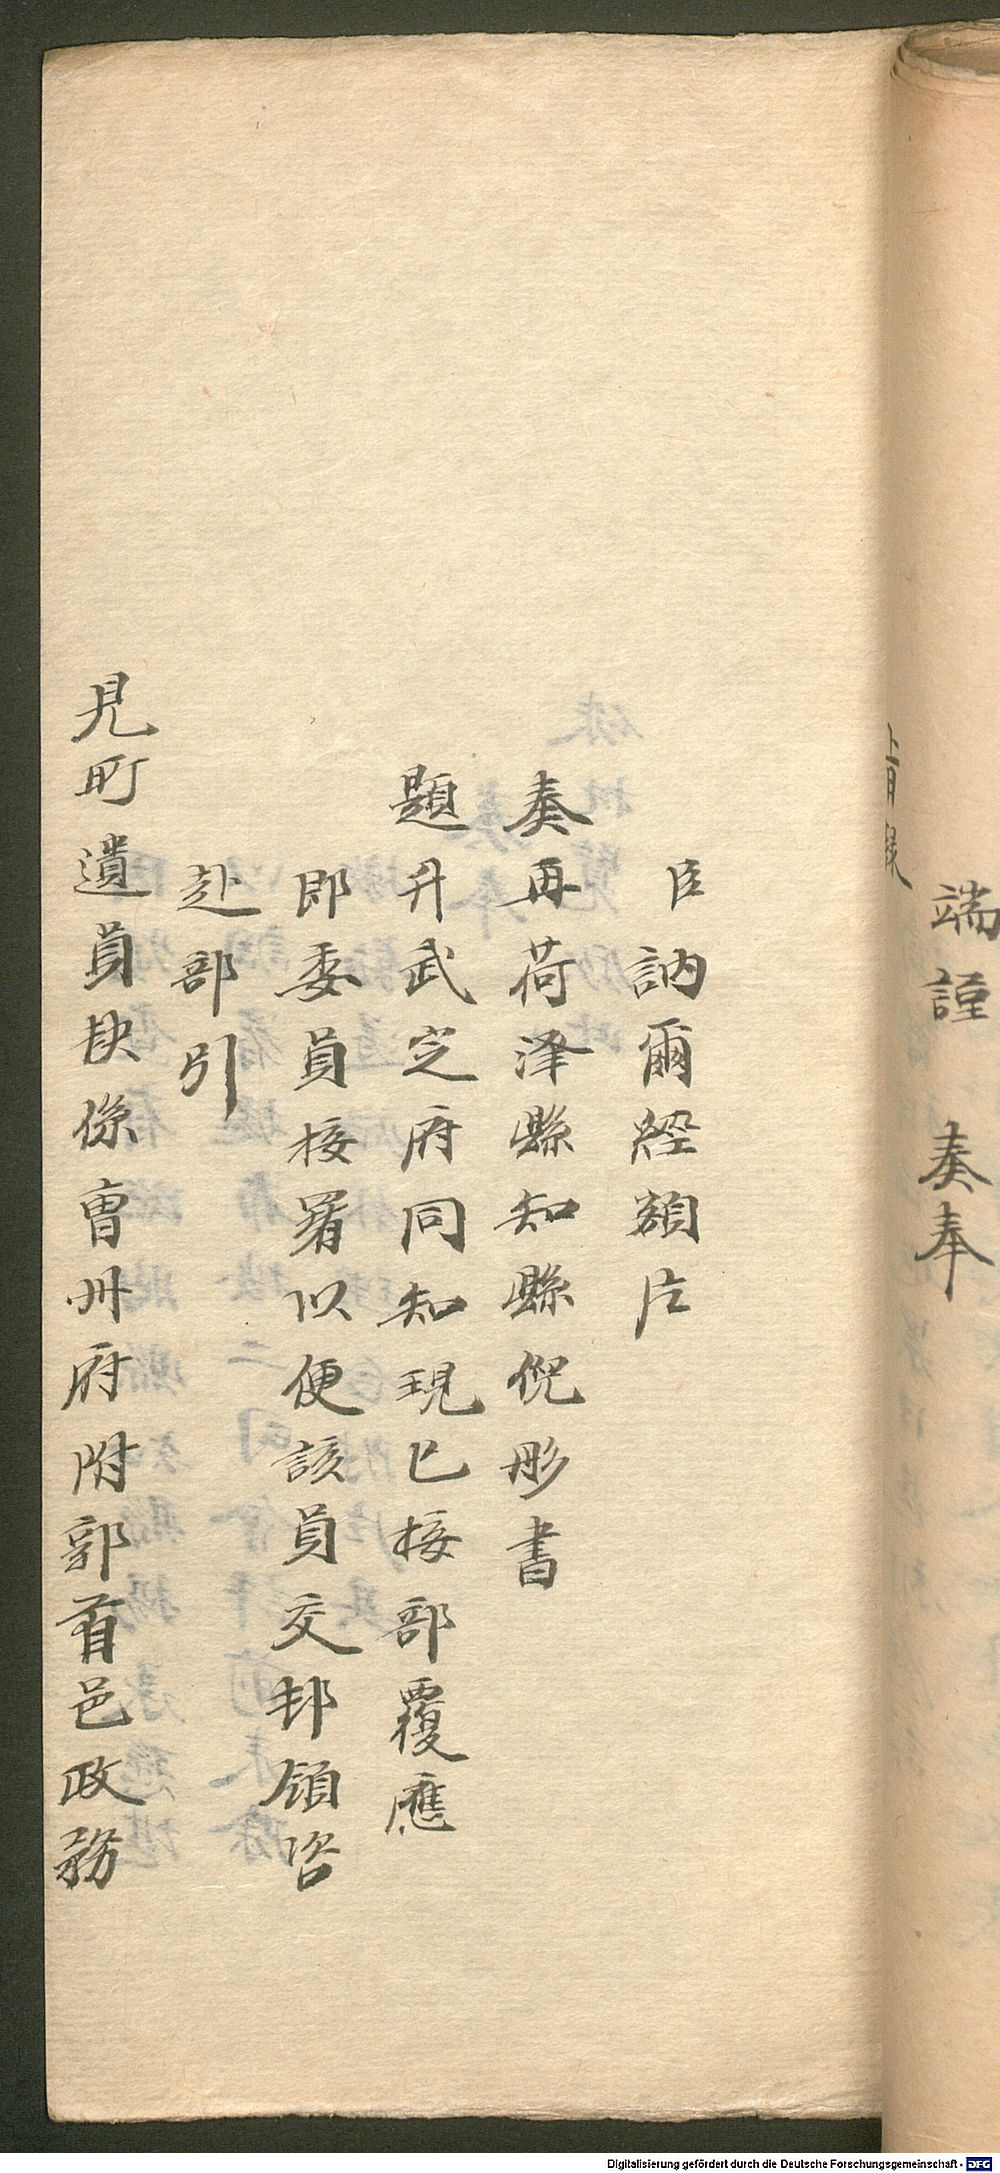 端謹　奏奉
旨錄
臣訥爾經額片
奏再荷泽縣知縣倪彤書
題升武定府同知現已接部覆應
即委員接署以便該員交卸領咨
赴部引
見所遺員缺係曹州府附郭首邑政務
Digitalisierung gefördert durch die Deutsche Forschungsgemeinschaft - DFG